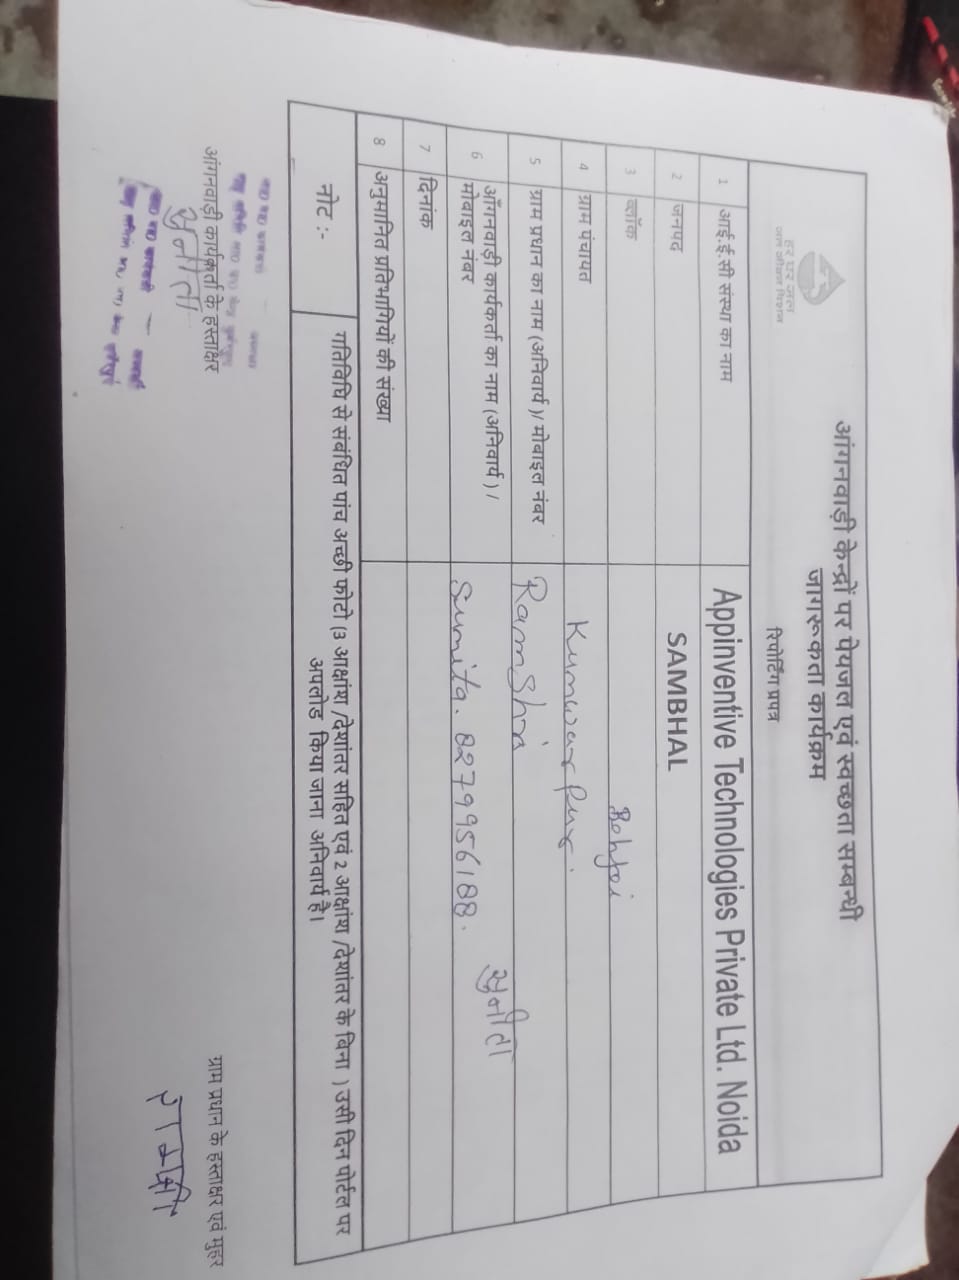 हर घर जल
जल जीवन मिशन
आंगनवाड़ी केन्द्रों पर पेयजल एवं स्वच्छता सम्बन्धी
जागरूकता कार्यक्रम
रिपोर्टिंग प्रपत्र
1 आई.ई.सी संस्था का नाम Appinventive Technologies Private Ltd. Noida
2 जनपद SAMBHAL
3 ब्लॉक Bahjoi
4 ग्राम पंचायत Kunwarpur.
5 ग्राम प्रधान का नाम (अनिवार्य)/ मोबाइल नंबर Ramshri
6 आँगनवाड़ी कार्यकर्ता का नाम (अनिवार्य) / सुनीता
मोबाइल नंबर Sunita. 8279956188.
7 दिनांक
8 अनुमानित प्रतिभागियों की संख्या
नोट :- गतिविधि से संबंधित पांच अच्छी फोटो (3 आक्षांश /देशांतर सहित एवं 2 आक्षांश /देशांतर के बिना ) उसी दिन पोर्टल पर
अपलोड किया जाना अनिवार्य है।
आंगनवाड़ी कार्यकर्ता के हस्ताक्षर
सुनीता
ग्राम प्रधान के हस्ताक्षर एवं मुहर
रामश्री